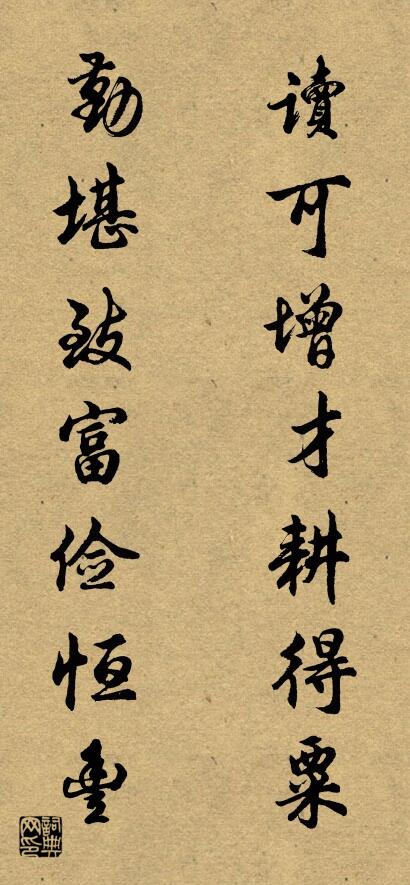 讀可增才耕得粟
勤堪致富俭恒豐
詞典网印